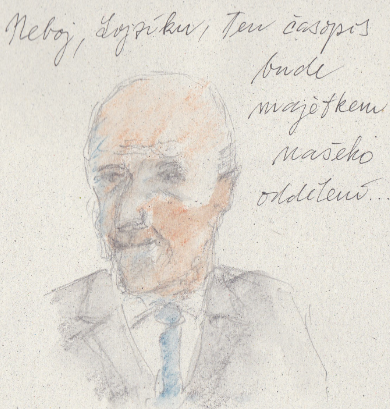 Neboj, Lojzíku, Ten časopis
bude
majetkem
našeho
oddělení...